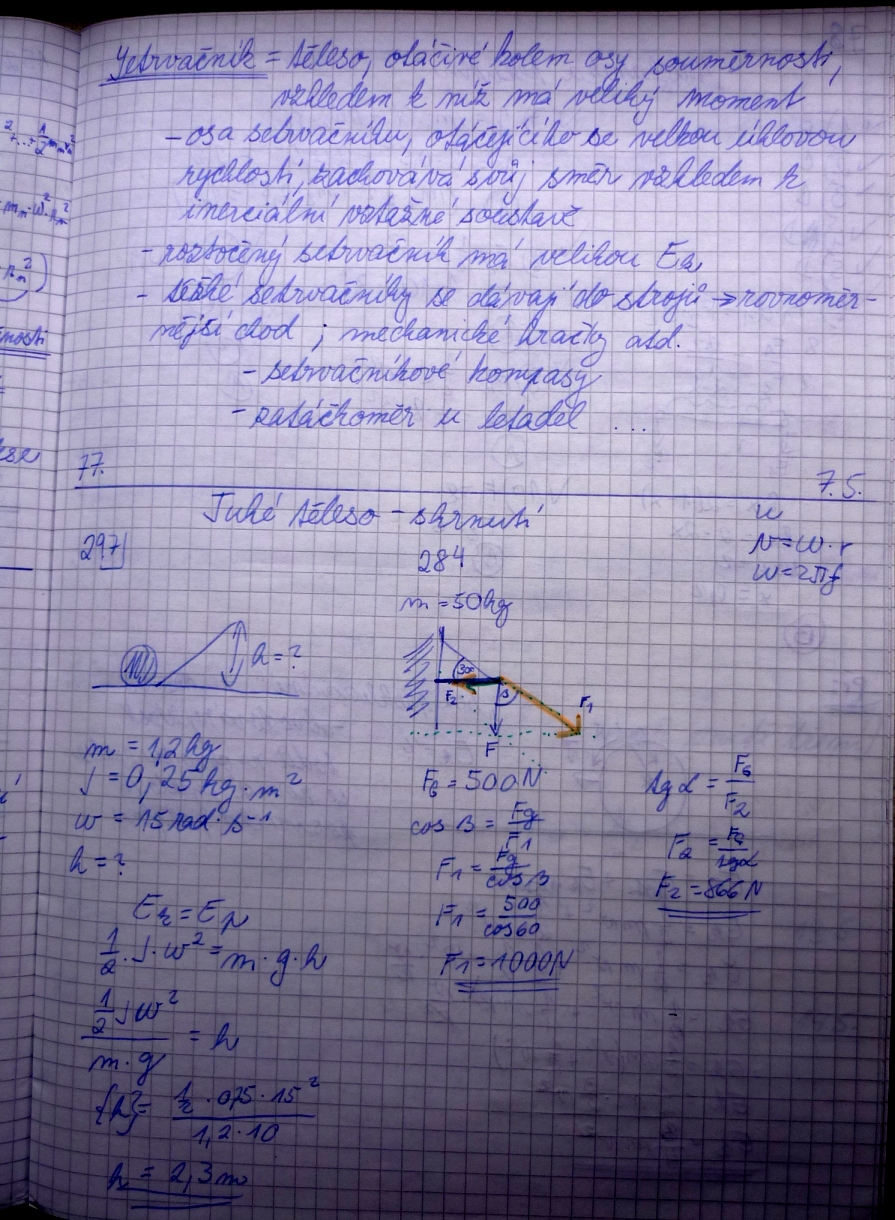 Setrvačník = těleso, otáčivé kolem osy souměrnosti,
vzhledem k níž má veliký moment
- osa setrvačníku, otáčejícího se velkou úhlovou
rychlostí, zachovává svůj směr vzhledem k
inerciální vztažné soustavě
- roztočený setrvačník má velikou Ek
- těžké setrvačníky se dávají do strojů → rovnoměr-
nější chod ; mechanické hračky atd.
- setrvačníkové kompasy
- zatáčkoměr u letadel ...
77.
7.5.
Tuhé těleso - shrnutí
v = ω · r
ω = 2πf
297
284
m = 50kg
h = ?
30°
β
F2
F1
F
m = 1,2kg
J = 0,25kg · m²
ω = 15 rad · s⁻¹
h = ?
Ek = Ep
1/2 · J · ω² = m · g · h
1/2 J ω² / m · g = h
{h} = 1/2 · 0,25 · 15² / 1,2 · 10
h = 2,3m
FG = 500N
cos β = Fg / F1
F1 = Fg / cos β
F1 = 500 / cos60
F1 = 1000N
tg α = FG / F2
F2 = FG / tgα
F2 = 866 N